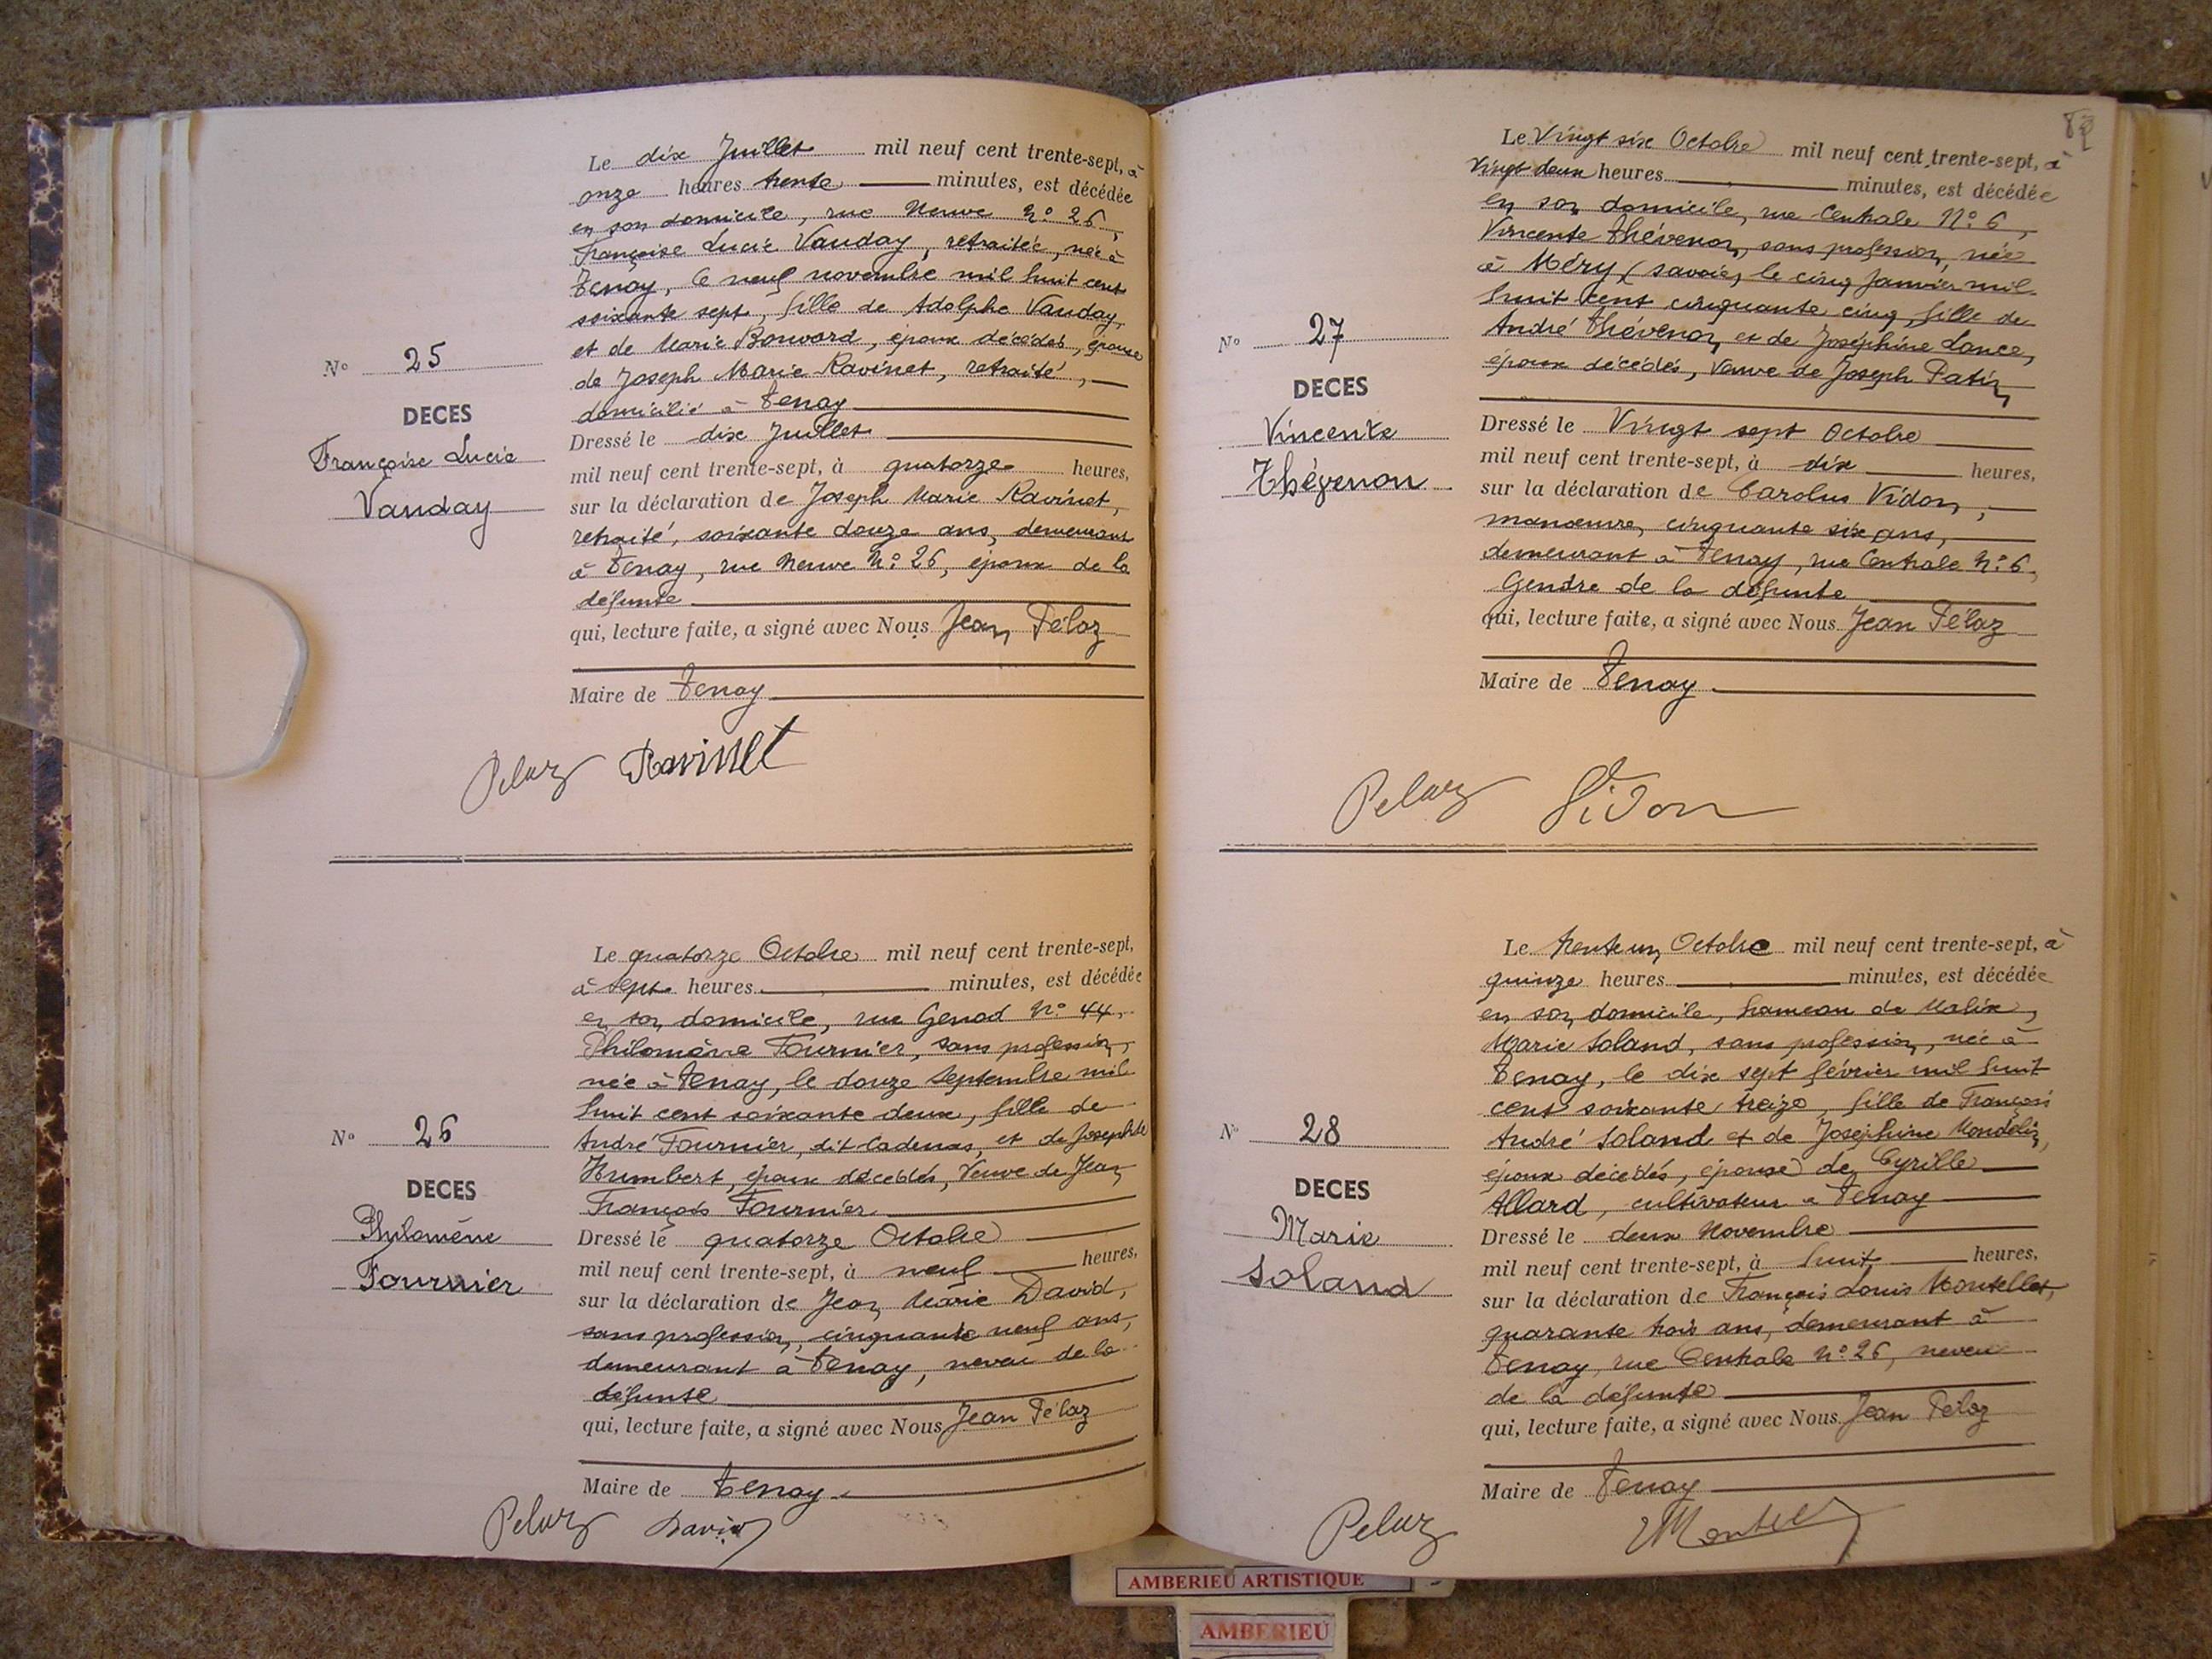 Le dix Juillet mil neuf cent trente-sept, à
onze heures trente minutes, est décédée
en son domicile, rue Neuve N° 26,
Françoise Lucie Vauday, retraitée, née à
Tenay, le neuf novembre mil huit cent
soixante sept, fille de Adolphe Vauday,
et de Marie Bonvard, époux décédés, épouse
de Joseph Marie Ravinet, retraité,
domicilié à Tenay
N° 25
DECES
Françoise Lucie
Vauday
Dressé le dix Juillet
mil neuf cent trente-sept, à quatorze heures,
sur la déclaration de Joseph Marie Ravinet,
retraité, soixante douze ans, demeurant
à Tenay, rue Neuve N° 26, époux de la
défunte
qui, lecture faite, a signé avec Nous Jean Pélaz
Maire de Tenay
Pelaz Ravinet
Le quatorze Octobre mil neuf cent trente-sept,
à sept heures minutes, est décédée
en son domicile, rue Genod N° 44,
Philomène Fournier, sans profession,
née à Tenay, le douze Septembre mil
huit cent soixante deux, fille de
André Fournier, dit Cadenas, et de Josephte
Humbert, époux décédés, Veuve de Jean
François Fournier
N° 26
DECES
Philomène
Fournier
Dressé le quatorze Octobre
mil neuf cent trente-sept, à neuf heures,
sur la déclaration de Jean Marie David,
sans profession, cinquante neuf ans,
demeurant à Tenay, neveu de la
défunte
qui, lecture faite, a signé avec Nous Jean Pélaz
Maire de Tenay
Pelaz David
Le Vingt six Octobre mil neuf cent trente-sept, à
Vingt deux heures minutes, est décédée
en son domicile, rue Centrale N° 6,
Vincente Thévenon, sans profession, née
à Méry (Savoie), le cinq Janvier mil
huit cent cinquante cinq, fille de
André Thévenon et de Joséphine Lance,
époux décédés, Veuve de Joseph Patin
N° 27
DECES
Vincente
Thévenon
Dressé le Vingt sept Octobre
mil neuf cent trente-sept, à dix heures,
sur la déclaration de Carolus Vidon,
manœuvre, cinquante six ans,
demeurant à Tenay, rue Centrale N° 6,
Gendre de la défunte
qui, lecture faite, a signé avec Nous Jean Pélaz
Maire de Tenay
Pelaz Vidon
Le trente un Octobre mil neuf cent trente-sept, à
quinze heures minutes, est décédée
en son domicile, hameau de Malix,
Marie Soland, sans profession, née à
Tenay, le dix sept février mil huit
cent soixante treize, fille de François
André Soland et de Joséphine Mondelin,
époux décédés, épouse de Cyrille
Allard, cultivateur à Tenay
N° 28
DECES
Marie
Soland
Dressé le deux Novembre
mil neuf cent trente-sept, à huit heures,
sur la déclaration de François Louis Montellet,
quarante trois ans, demeurant à
Tenay, rue Centrale N° 26, neveu
de la défunte
qui, lecture faite, a signé avec Nous Jean Pelaz
Maire de Tenay
Pelaz
AMBERIEU ARTISTIQUE
AMBERIEU